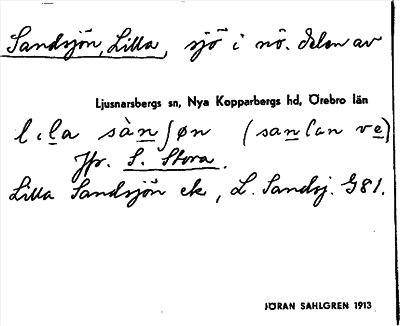 Sandsjön, Lilla, sjö i nö. delen av
Ljusnarsbergs sn, Nya Kopparbergs hd, Örebro län
lila sànʃøn (sanʃan ve)
Jfr. S. Stora.
Lilla Sandsjön ek, L. Sandsj. G81.
JÖRAN SAHLGREN 1913